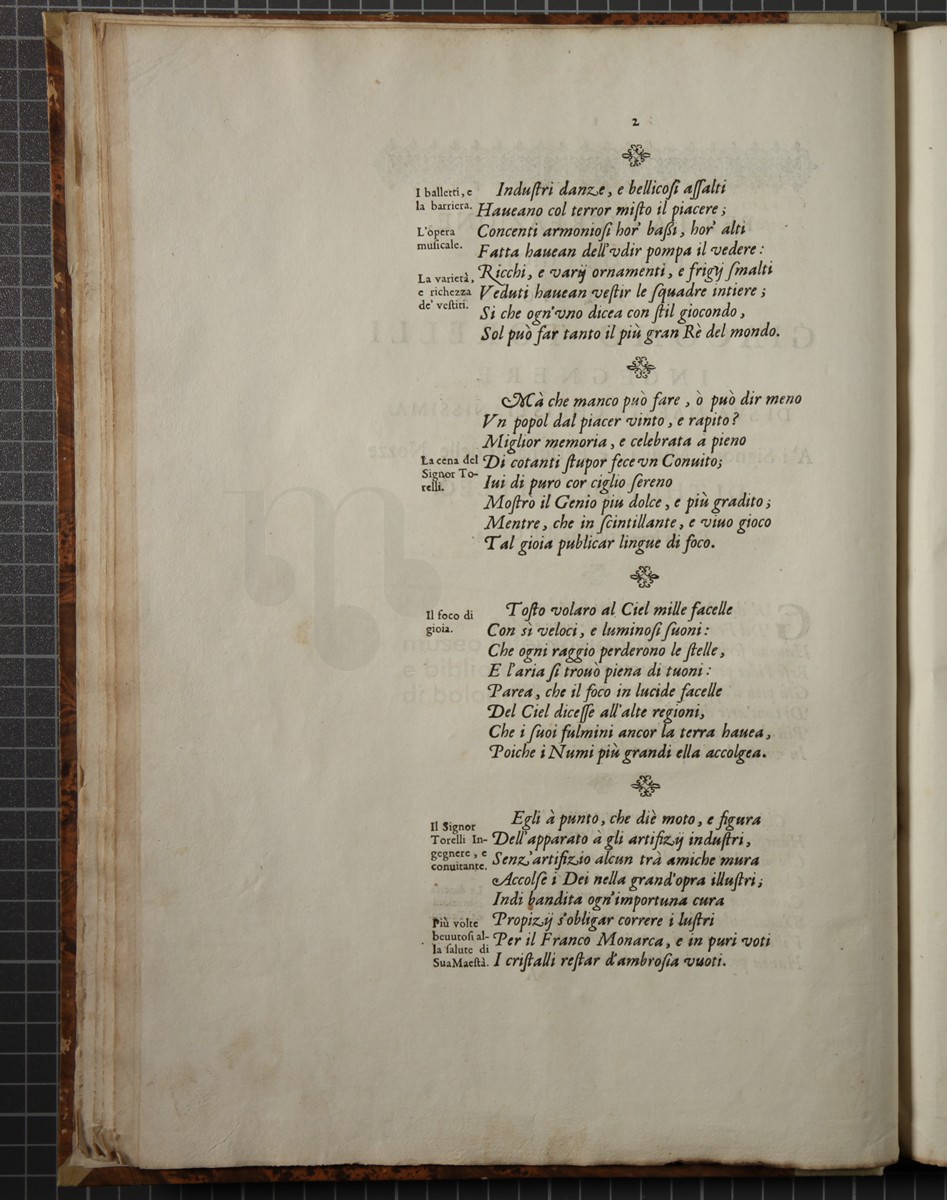 2
I balletti, e
la barriera.
Induſtri danze, e bellicoſi aſſalti
Haueano col terror miſto il piacere;
L'opera
muſicale.
Concenti armonioſi hor' baſſi, hor' alti
Fatta hauean dell'vdir pompa il vedere:
La varietà,
e richezza
de' veſtiti.
Ricchi, e varij ornamenti, e frigij ſmalti
Veduti hauean veſtir le ſquadre intiere;
Si che ogn'vno dicea con ſtil giocondo,
Sol può far tanto il più gran Rè del mondo.
Mà che manco può fare, ò può dir meno
Vn popol dal piacer vinto, e rapito?
Miglior memoria, e celebrata a pieno
La cena del
Signor To-
relli.
Di cotanti ſtupor fece vn Conuito;
Iui di puro cor ciglio ſereno
Moſtrò il Genio piu dolce, e più gradito;
Mentre, che in ſcintillante, e viuo gioco
Tal gioia publicar lingue di foco.
Il foco di
gioia.
Toſto volaro al Ciel mille facelle
Con sì veloci, e luminoſi ſuoni:
Che ogni raggio perderono le ſtelle,
E l'aria ſi trouò piena di tuoni:
Parea, che il foco in lucide facelle
Del Ciel diceſſe all'alte regioni,
Che i ſuoi fulmini ancor la terra hauea,
Poiche i Numi più grandi ella accolgea.
Il Signor
Torelli In-
gegnere, e
conuitante.
Egli à punto, che diè moto, e figura
Dell'apparato à gli artifizij induſtri,
Senz'artifizio alcun trà amiche mura
Accolſe i Dei nella grand'opra illuſtri;
Indi bandita ogn'importuna cura
Più volte
beuutoſi al-
la ſalute di
Sua Maeſtà.
Propizij s'obligar correre i luſtri
Per il Franco Monarca, e in puri voti
I criſtalli reſtar d'ambroſia vuoti.